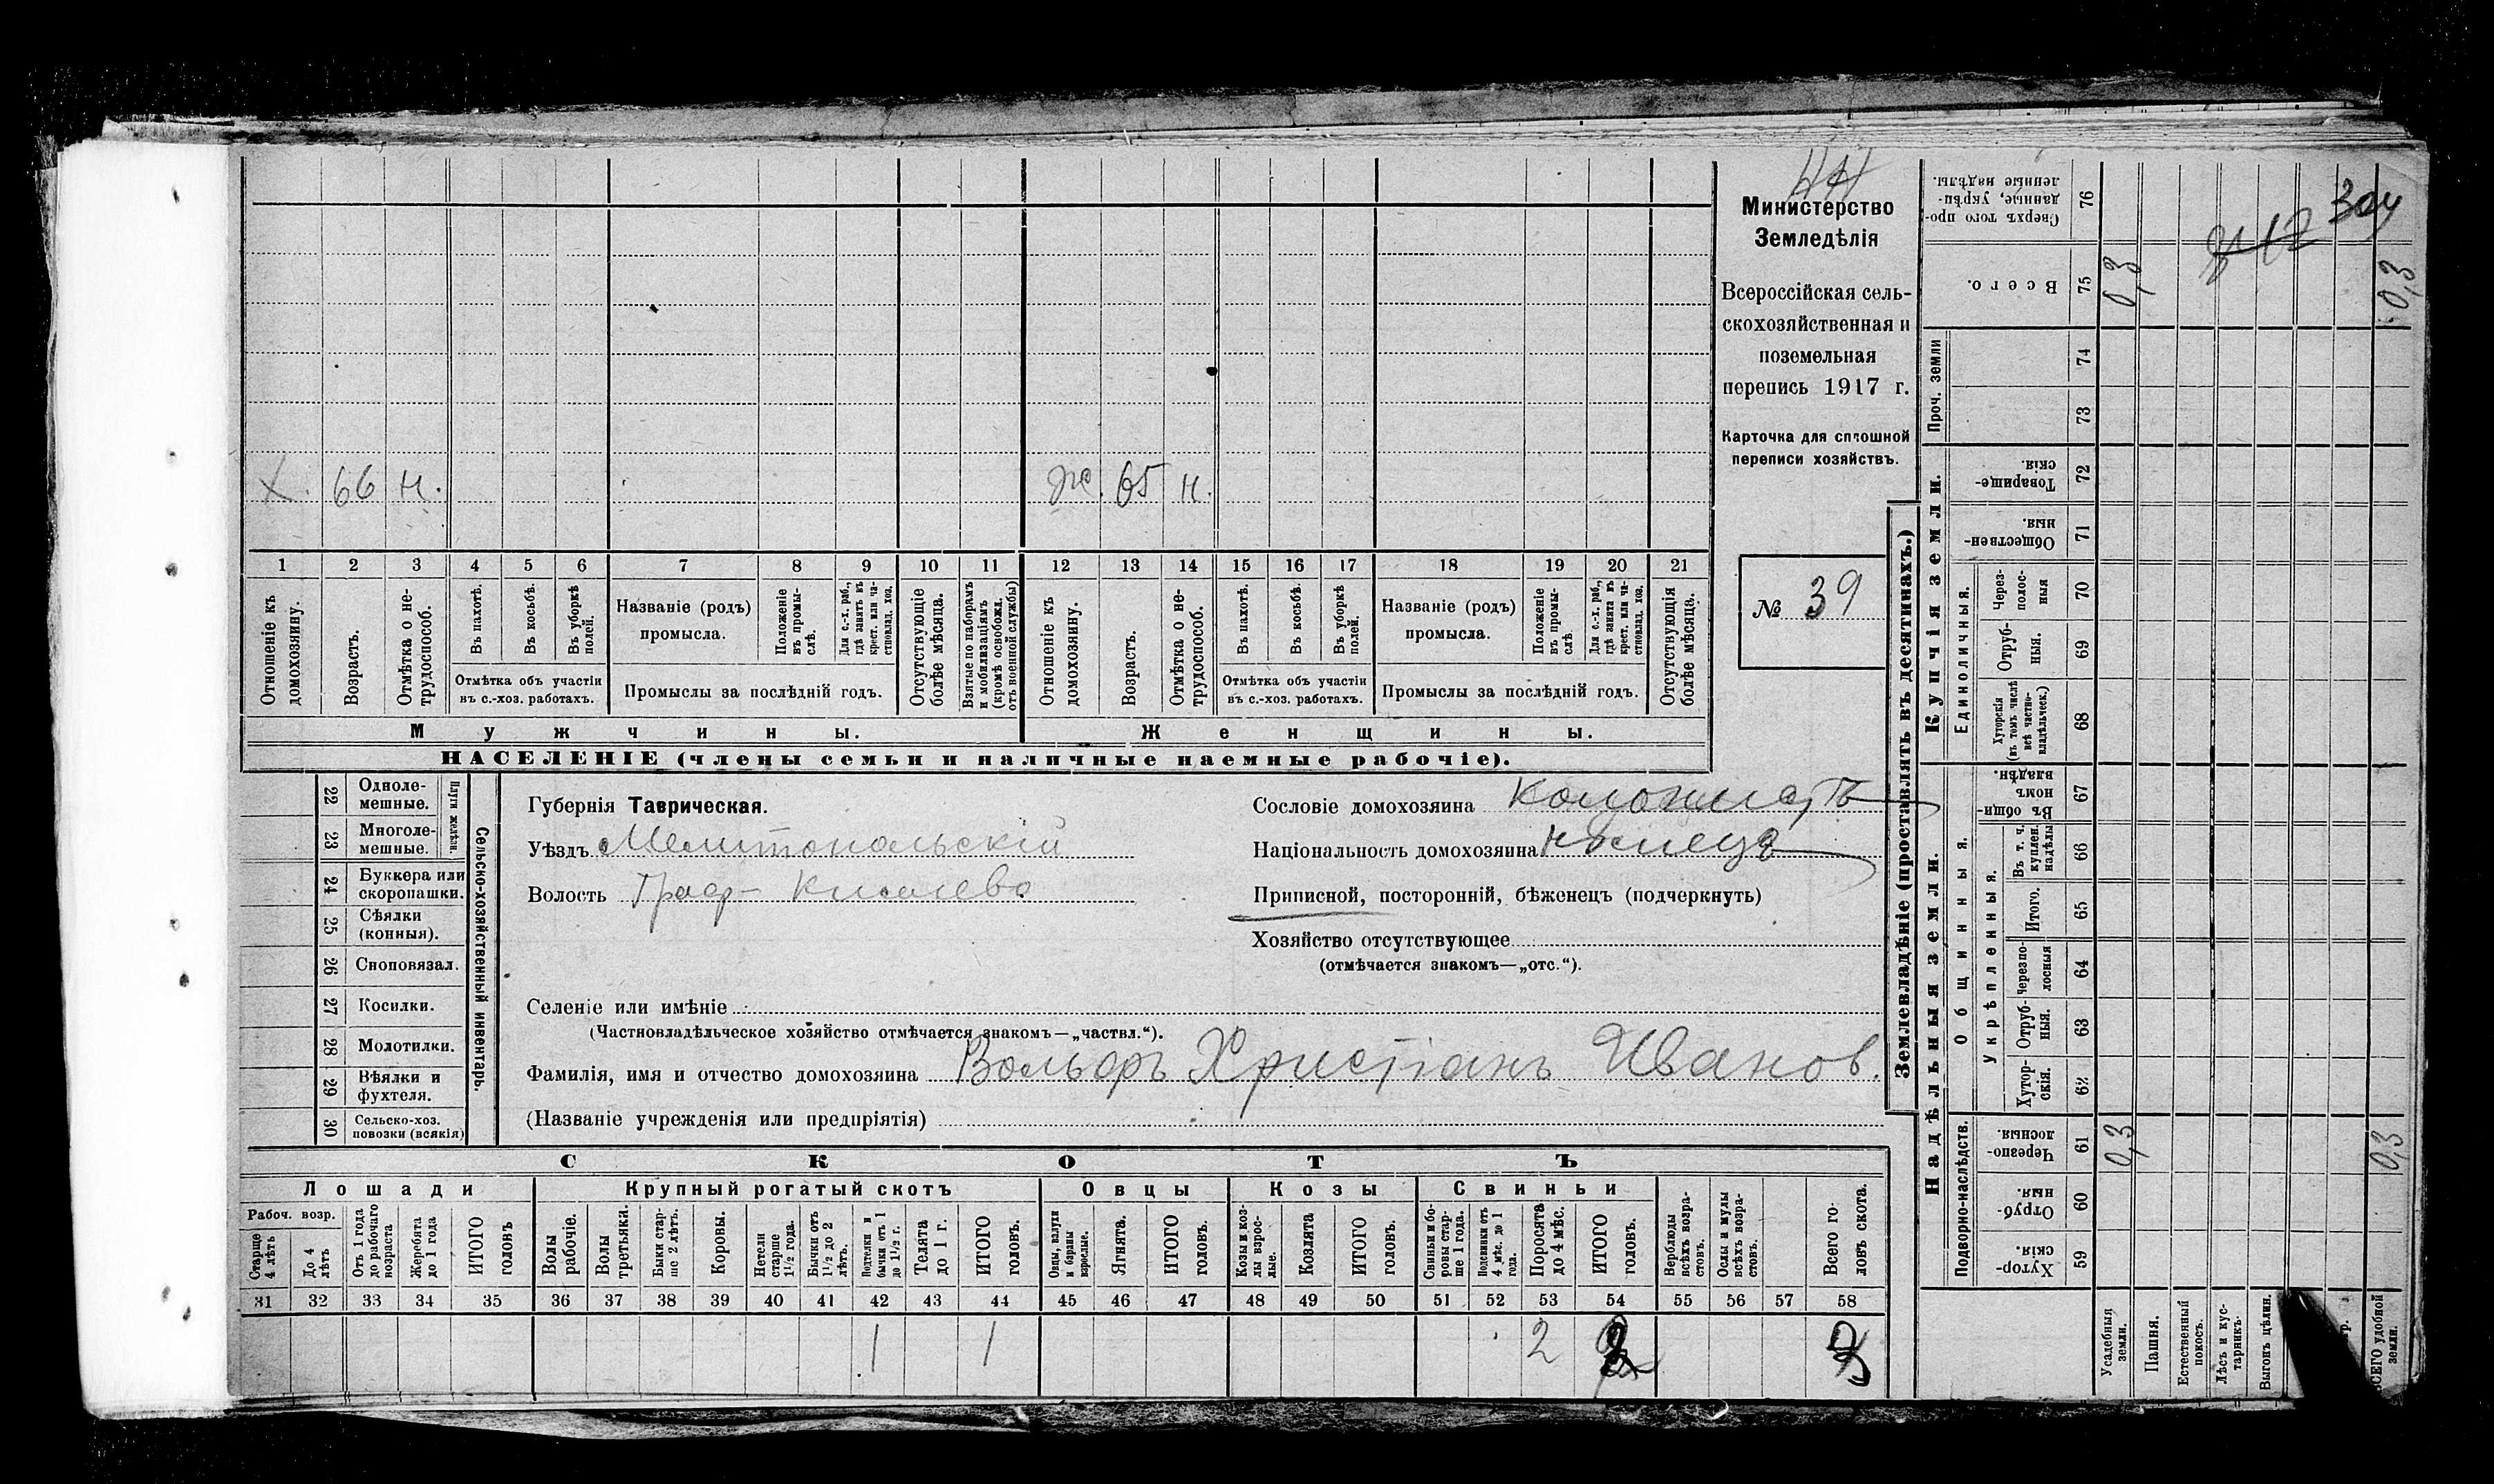 х. 66 н. ж. 65 н.
1 2 3 4 5 6 7 8 9 10 11 12 13 14 15 16 17 18 19 20 21
Отношеніе къ домохозяину.
Возрастъ.
Отмѣтка о нетрудоспособ.
Въ пахотѣ.
Въ косьбѣ.
Въ уборкѣ полей.
Отмѣтка объ участіи
въ с.-хоз. работахъ.
Названіе (родъ)
промысла.
Положеніе въ промыслѣ.
Для с.-х. раб., гдѣ занятъ въ крест. или частновлад. хоз.
Промыслы за послѣдній годъ.
Отсутствующіе болѣе мѣсяца.
Взятые по наборамъ и мобилизаціямъ (кромѣ освобожд. отъ военной службы)
Отношеніе къ домохозяину.
Возрастъ.
Отмѣтка о нетрудоспособ.
Въ пахотѣ.
Въ косьбѣ.
Въ уборкѣ полей.
Отмѣтка объ участіи
въ с.-хоз. работахъ.
Названіе (родъ)
промысла.
Положеніе въ промыслѣ.
Для с.-х. раб., гдѣ занята въ крест. или частновлад. хоз.
Промыслы за послѣдній годъ.
Отсутствующія болѣе мѣсяца.
Мужчины. Женщины.
НАСЕЛЕНІЕ (члены семьи и наличные наемные рабочіе).
Министерство
Земледѣлія
Всероссійская сель-
скохозяйственная и
поземельная
перепись 1917 г.
Карточка для сплошной
переписи хозяйствъ.
№ 39
22 Одноле-
мешные.
23 Многоле-
мешные.
Плуги желѣзн.
24 Буккера или
скоропашки.
25 Сѣялки
(конныя).
26 Сноповязал.
27 Косилки.
28 Молотилки.
29 Вѣялки и
фухтеля.
30 Сельско-хоз.
повозки (всякія)
Сельско-хозяйственный инвентарь.
Губернія Таврическая.
Уѣздъ Мелитопольскій
Волость Граф-Киселевс
Сословіе домохозяина колонистъ
Національность домохозяина нѣмецъ
Приписной, посторонній, бѣженецъ (подчеркнуть)
Хозяйство отсутствующее
(отмѣчается знакомъ—„отс.“).
Селеніе или имѣніе
(Частновладѣльческое хозяйство отмѣчается знакомъ—„частвл.“).
Фамилія, имя и отчество домохозяина Вольфъ Христіанъ Иванов.
(Названіе учрежденія или предпріятія)
СКОТЪ
Лошади Крупный рогатый скотъ Овцы Козы Свиньи
Рабоч. возр.
Старше 4 лѣтъ
До 4 лѣтъ
Отъ 1 года до рабочаго возраста
Жеребята до 1 года
ИТОГО головъ
Волы рабочіе.
Волы третьяка.
Быки старше 2 лѣтъ.
Коровы.
Нетели старше 1½ года.
Бычки отъ 1½ до 2 лѣтъ.
Подтелки и бычки отъ 1 до 1½ г.
Телята до 1 г.
ИТОГО головъ.
Овцы, валухи и бараны взрослые.
Ягнята.
ИТОГО головъ.
Козы и козлы взрослые.
Козлята
ИТОГО головъ.
Свиньи и боровы старше 1 года.
Подсвинки отъ 4 мѣс. до 1 года.
Поросята до 4 мѣс.
ИТОГО головъ.
Верблюды всѣхъ возрастовъ.
Ослы и мулы всѣхъ возрастовъ.
Всего головъ скота.
31 32 33 34 35 36 37 38 39 40 41 42 43 44 45 46 47 48 49 50 51 52 53 54 55 56 57 58
1 1 2 2 3
Землевладѣніе (проставлять въ десятинахъ.)
Надѣльныя земли. Купчія земли. Проч. земли
Подворно-наслѣдств.
Общинныя.
Укрѣпленныя.
Единоличныя.
Сверхъ того проданные, укрѣпленные надѣлы. 76
Всего. 75 0,3 0,3
304
74
73
Товарищескія. 72
Общественныя. 71
Черезполосныя 70
Отрубныя. 69
Хуторскія (въ томъ числѣ всѣ частновладѣльческ.) 68
Въ общинномъ владѣн. 67
Въ т. ч. куплен. надѣлы 66
Итого. 65
Черезполосныя 64
Отрубныя. 63
Хуторскія. 62
Черезполосныя. 61 0,3 0,3
Отрубныя. 60
Хуторскія. 59
Усадебныя земли.
Пашня.
Естественный покосъ.
Лѣсъ и кустарникъ.
Выгонъ цѣлин.
ВСЕГО удобной земли.